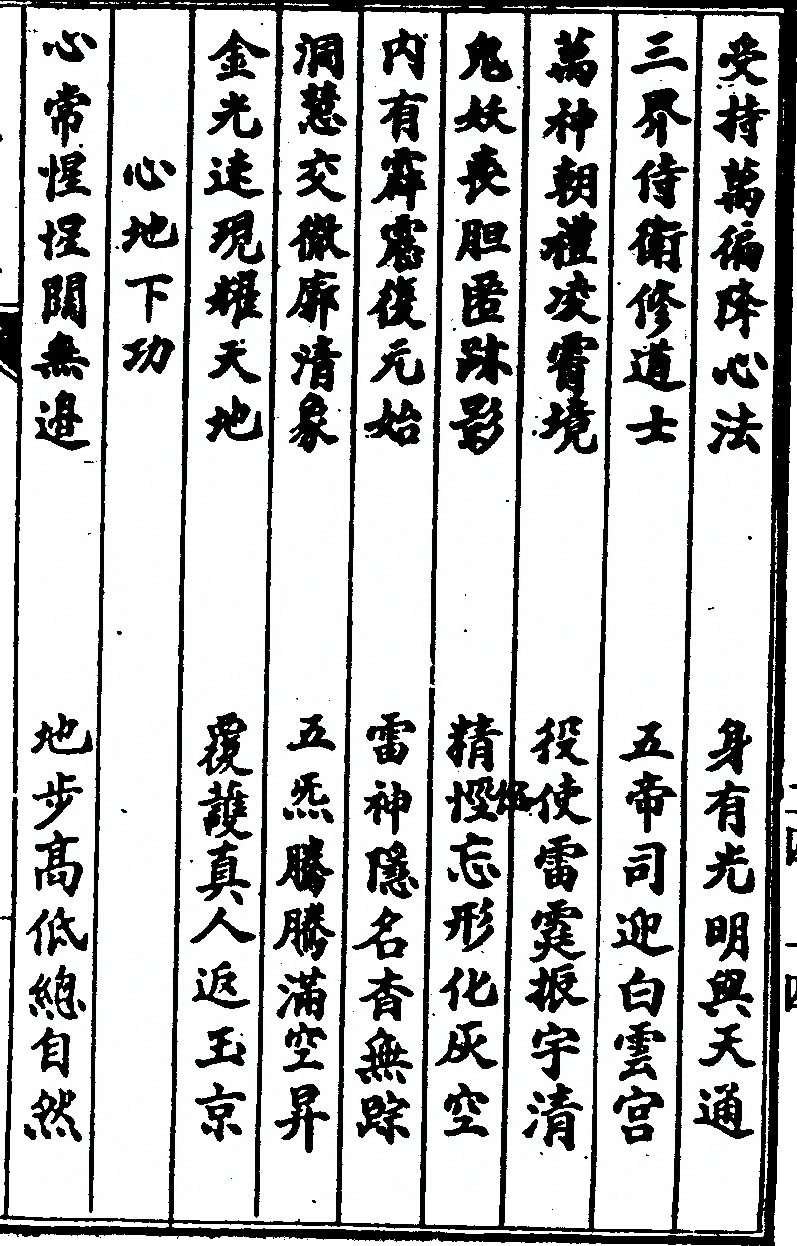 受持萬徧降心法　身有光明與天通
三界侍衛修道士　五帝司迎白雲宮
萬神朝禮凌霄境　投使雷霆振宇清
鬼妖喪胆匿跡影　精怪忘形化灰空
内有霹靂復元始　雷神隱名杳無踪
洞慧交徹廓清象　五炁騰騰滿空昇
金光速現耀天地　覆護真人返玉京
心地下功
心常惺惺闊無邊　地步高低總自然